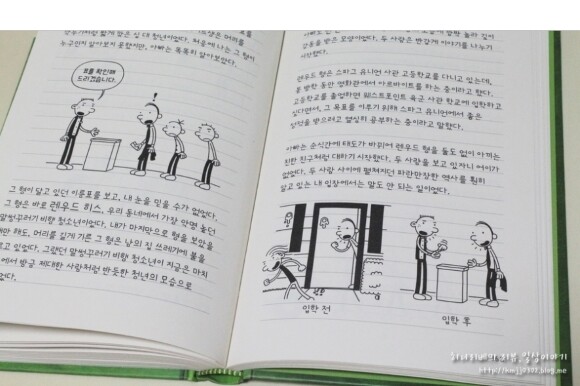 누구인지 알아보지 못했지만, 아빠는 똑똑히 알아보았다.
표를 확인해
드리겠습니다.
!
그 형이 달고 있던 이름표를 보고, 내 눈을 믿을 수가 없었다.
그 형은 바로 렌우드 히스, 우리 동네에서 가장 악명 높던
말썽꾸러기 비행 청소년이었다. 내가 마지막으로 형을 보았을
때만 해도, 머리를 길게 기른 그 형은 남의 집 쓰레기에 불을
고 있었다. 그랬던 말썽꾸러기 비행 청소년이 지금은 마치
에서 방금 제대한 사람처럼 반듯한 청년의 모습으로
었다.
감동을 받은 모양이었다. 두 사람은 반갑게 이야기를 나누기
시작했다.
렌우드 형은 스파그 유니언 사관 고등학교를 다니고 있는데,
봄 방학 동안 영화관에서 아르바이트를 하는 중이라고 했다.
고등학교를 졸업하면 웨스트포인트 육군 사관 학교에 입학하고
싶다면서, 그 목표를 이루기 위해 스파그 유니언에서 좋은
성적을 받으려고 열심히 공부하는 중이라고 말했다.
아빠는 순식간에 태도가 바뀌어 렌우드 형을 둘도 없이 아끼는
친한 친구처럼 대하기 시작했다. 두 사람을 보고 있자니 어이가
없었다. 두 사람 사이에 펼쳐지던 파란만장한 역사를 훤히
알고 있는 내 입장에서는 말도 안 되는 일이었다.
입학 전
입학 후
http://hmjj0302.blog.me